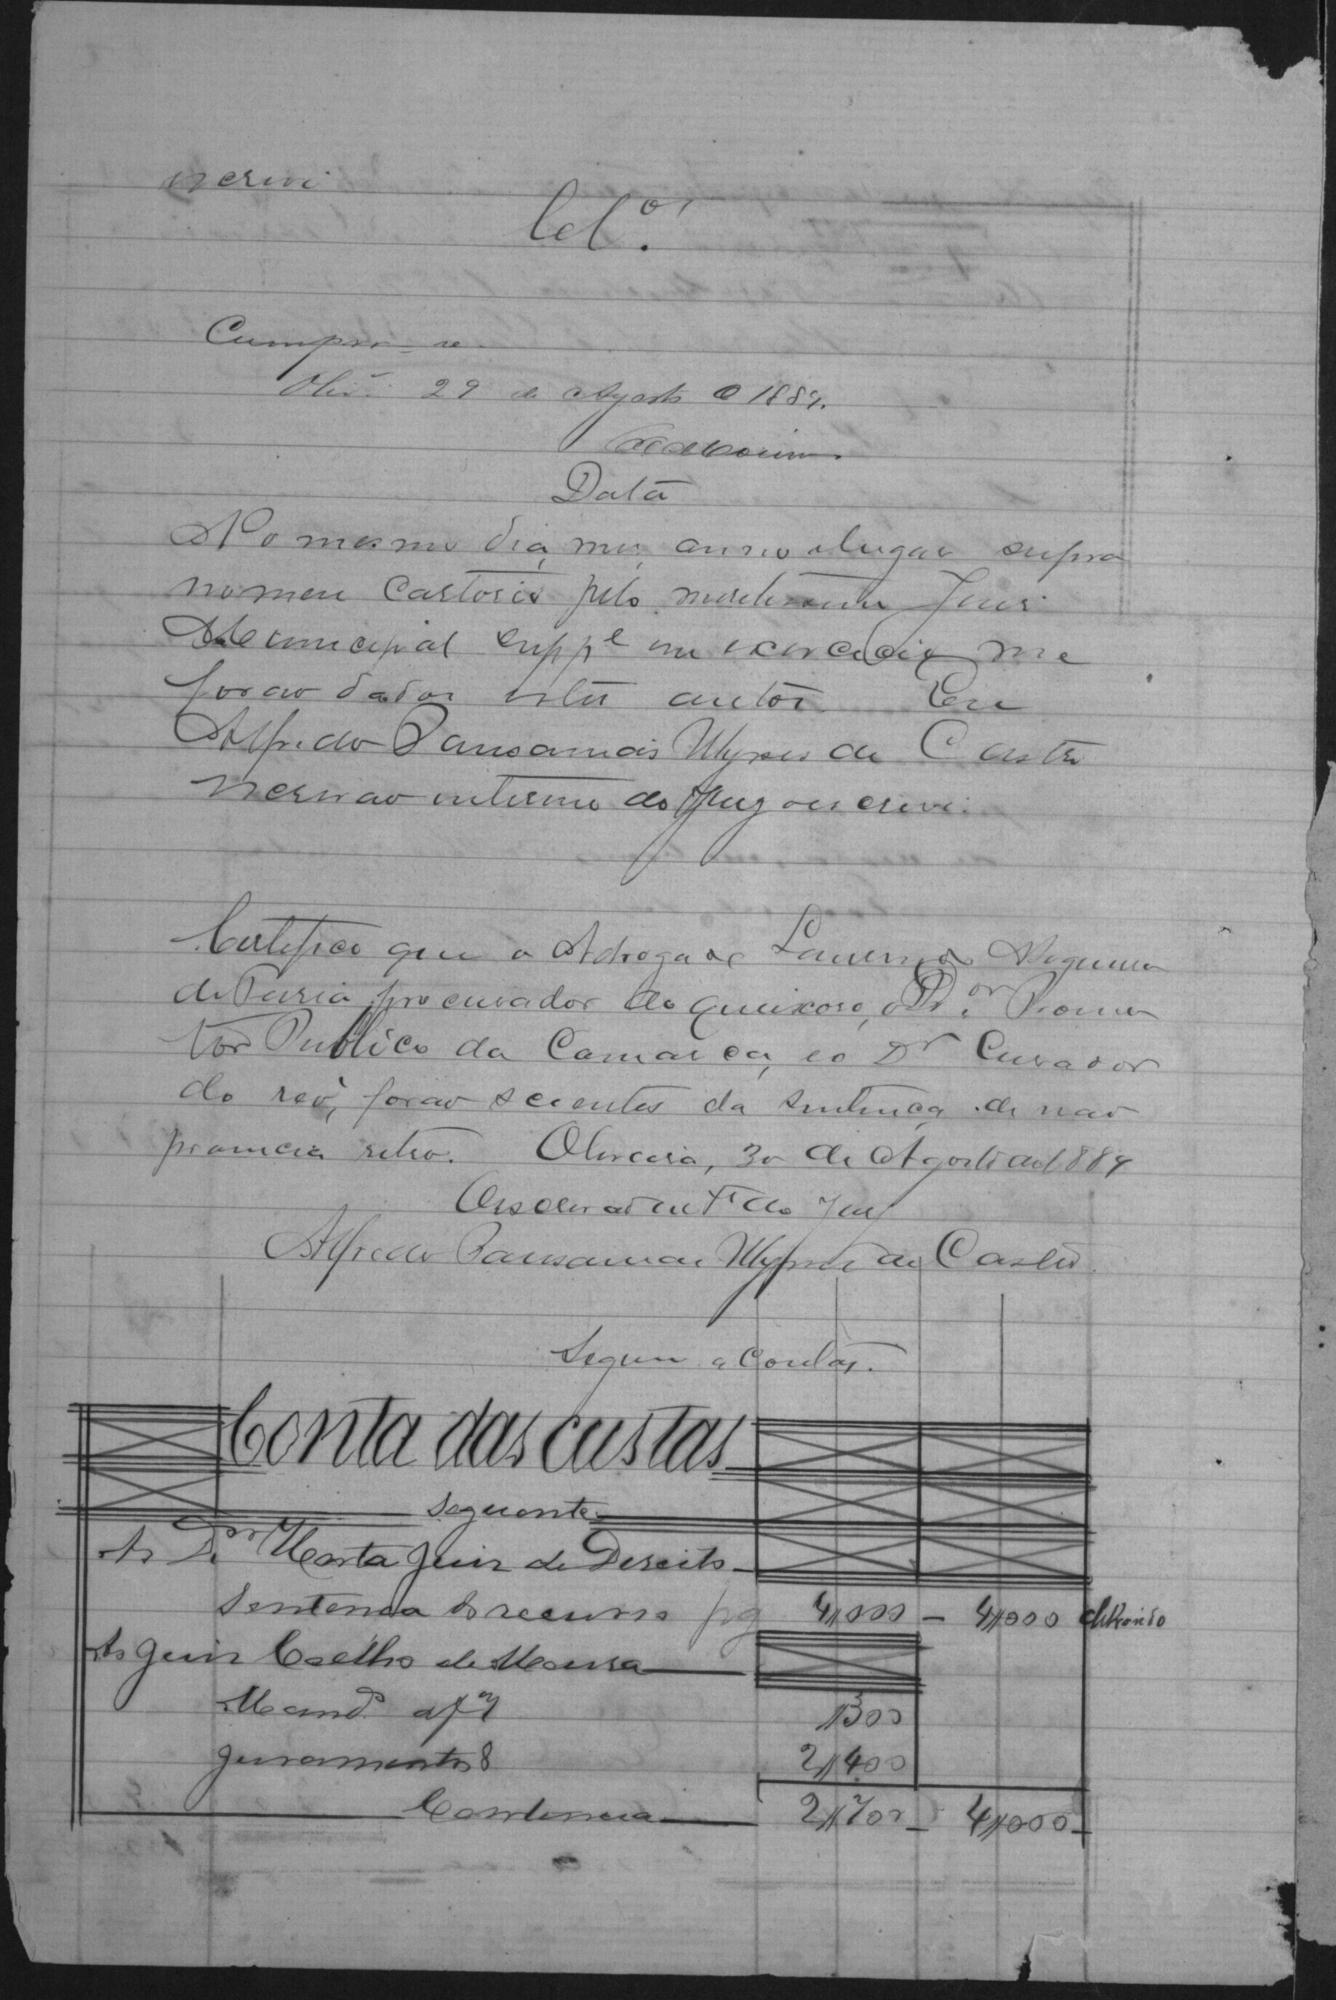 escrivi
Cls.º
Cumpra-se
Olivª 29 de Agosto de 1889.
Data
No mesmo dia, mez, anno e lugar supra
no meu Cartorio pelo meretissimo Juiz
Municipal suppe em exercicio me
forão dados estes autos. Eu
Alfredo Pansamas Ulysses de Castro
escrivão interino do Jury o escrevi.
Certifico que o Advogado
de Faria procurador do queixoso, o Dr. Promo
tor Publico da Comarca, e o Dr Curador
do reo, forão scientes da sentença de não
pronuncia retro. Oliveira, 30 de Agosto de 1889
O escrivão intº do Jury
Alfredo Pansamas Ulysses de Castro
Segue a Conta.
Conta das custas
seguente
Ao Dor Horta Juiz de Direito
Sentença do recurso pg 4,000 - 4,000
Ao Juiz Coelho de Moura
Mando af 7 ,300
Juramentos 8 2,400
2,700 - 4,000